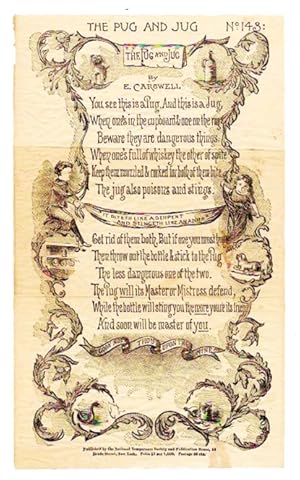 THE PUG AND JUG No 148:
THE PUG AND JUG
BY
E. CARSWELL
You see this is a Pug, And this is a Jug,
When one's in the cupboard & one on the rug
Beware they are dangerous things.
When one's full of whiskey the other of spite
Keep them muzzled & corked for both of them bite
The jug also poisons and stings.
IT BITETH LIKE A SERPENT
AND STINGETH LIKE AN ADDER
Get rid of them both, But if one you must
Then throw out the bottle & stick to the Pug
The less dangerous one of the two.
The Pug will its Master or Mistress defend,
While the bottle will sting you the more you're its friend
And soon will be master of you.
LOOK NOT THOU UPON THE WINE
Published by the National Temperance Society and Publication House, 58
Reade Street, New York. Price $1 per 1,000. Postage